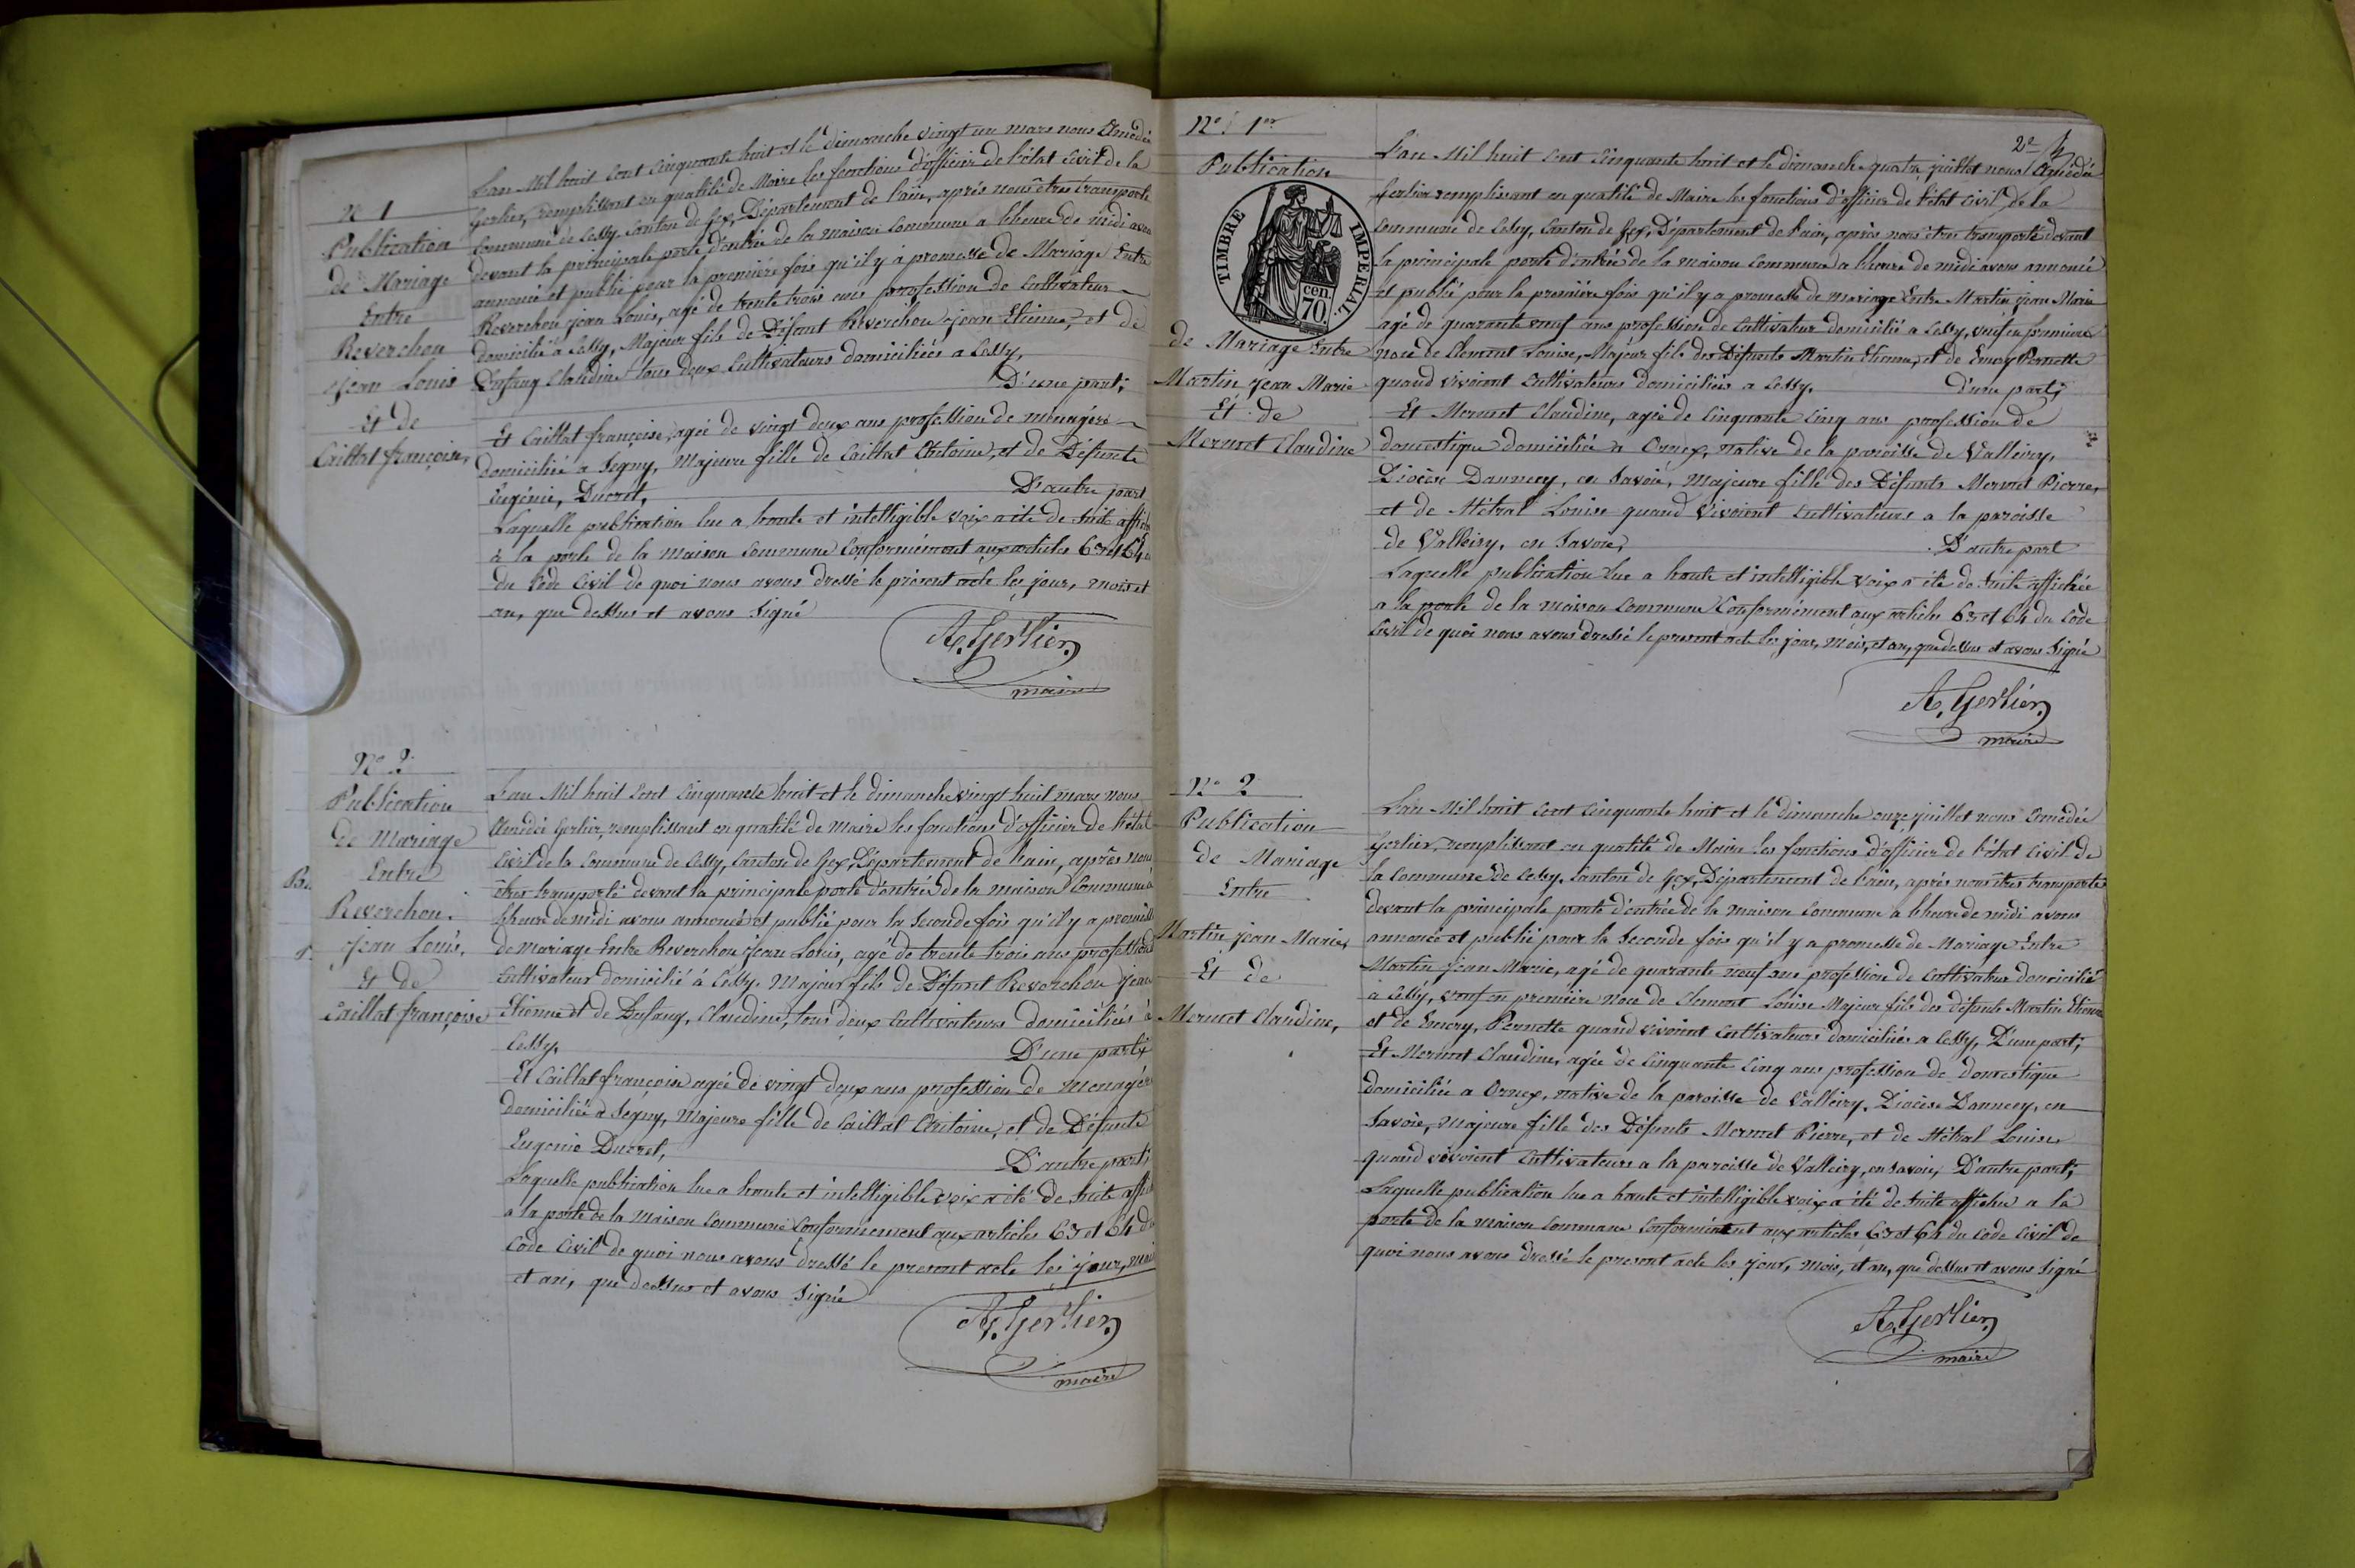 N° 1
Publication
de Mariage
Entre
Reverchon
jean Louis
Et de
Caillat françoise,
L'an Mil huit Cent Cinquante huit et le dimanche vingt un mars nous Amédée
Gerlier, remplissant en qualité de Maire les fonctions d'officier de l'état Civil de la
Commune de Cessy, Canton de Gex, Département de l'ain, après nous être transporté
devant la principale porte d'entrée de la maison Commune a l'heure de midi avons
annoncé et publié pour la première fois qu'il y a promesse de Mariage Entre
Reverchon jean Louis, agé de trente trois ans profession de Cultivateur
domicilié a Cessy, Majeur fils de Défunt Reverchon jean Etienne, et de
Dufang Claudine tous deux Cultivateurs domiciliés a Cessy,
D'une part;
Et Caillat françoise, agée de vingt deux ans profession de menagère
domiciliée a Segny, Majeure fille de Caillat Antoine, et de Défunte
Eugénie, Ducret, D'autre part
Laquelle publication lue a haute et intelligible voix a été de suite affichée
à la porte de la maison Commune Conformément aux articles 63 et 64
du Code Civil de quoi nous avons dressé le présent acte les jour, mois et
an, que dessus et avons signé
A. Gerlier
maire
N° 2
Publication
de Mariage
Entre
Reverchon
jean Louis,
Et de
Caillat françoise
L'an Mil huit Cent Cinquante huit et le dimanche vingt huit mars nous
Amédée Gerlier, remplissant en qualité de Maire les fonctions d'officier de l'état
Civil de la Commune de Cessy, Canton de Gex, Département de l'ain, après nous
être transporté devant la principale porte d'entrée de la maison Commune à
l'heure de midi avons annoncé et publié pour la Seconde fois qu'il y a promesse
de Mariage Entre Reverchon jean Louis, agé de trente trois ans profession
Cultivateur domicilié à Cessy, Majeur fils de Défunt Reverchon jean
Etienne et de Dufang, Claudine, tous deux Cultivateurs domiciliés à
Cessy, D'une part;
Et Caillat françoise agée de vingt deux ans profession de menagère
domiciliée à Segny, Majeure fille de Caillat Antoine, et de Défunte
Eugénie Ducret, D'autre part;
Laquelle publication lue a haute et intelligible voix a été de suite affichée
à la porte de la Maison Commune Conformément aux articles 63 et 64 du
Code Civil de quoi nous avons dressé le present acte les jour, mois
et an, que dessus et avons signé
A. Gerlier
maire
N° 1er
Publication
TIMBRE IMPERIAL
cen.
70
de Mariage Entre
Martin jean Marie
Et de
Mermet Claudine
L'an Mil huit Cent Cinquante huit et le dimanche quatre juillet nous Amédée
Gerlier remplissant en qualité de Maire les fonctions d'officier de l'état Civil de la
Commune de Cessy, Canton de Gex, Département de l'ain, après nous être transporté devant
la principale porte d'entrée de la maison Commune a l'heure de midi avons annoncé
et publié pour la première fois qu'il y a promesse de mariage Entre Martin jean Marie
agé de quarante neuf ans profession de Cultivateur domicilié a Cessy, veuf en premiere
noce de Clement Louise, Majeur fils des Défunts Martin Etienne, et de Emery Pernette
quand vivoient Cultivateurs domiciliés a Cessy. D'une part;
Et Mermet Claudine, agée de Cinquante Cinq ans profession de
domestique domiciliée a Ornex, native de la paroisse de Valleiry,
Diocèse Dannecy, en Savoie, Majeure fille des Défunts Mermet Pierre,
et de Métral Louise quand vivoient Cultivateurs a la paroisse
de Valleiry, en Savoie, D'autre part
Laquelle publication lue a haute et intelligible voix a été de suite affichée
a la porte de la maison Commune Conformément aux articles 63 et 64 du Code
Civil de quoi nous avons dressé le present acte les jour, Mois, et an, que dessus et avons signé
A. Gerlier
maire
N° 2
Publication
de Mariage
Entre
Martin jean Marie,
Et de
Mermet Claudine,
L'an Mil huit Cent Cinquante huit et le dimanche onze juillet nous Amédée
Gerlier, remplissant en qualité de Maire les fonctions d'officier de l'état Civil de
la Commune de Cessy, Canton de Gex, Département de l'ain, après nous être transporté
devant la principale porte d'entrée de la maison Commune a l'heure de midi avons
annoncé et publié pour la Seconde fois qu'il y a promesse de Mariage Entre
Martin jean Marie, agé de quarante neuf ans profession de Cultivateur domicilié
à Cessy, veuf en première Noce de Clement Louise Majeur fils des défunts Martin Etienne
et de Emery, Pernette quand vivoient Cultivateurs domiciliés a Cessy, D'une part;
Et Mermet Claudine, agée de Cinquante Cinq ans profession de domestique
domiciliée a Ornex, native de la paroisse de Valleiry, Diocèse Dannecy, en
Savoie, Majeure fille des Défunts Mermet Pierre, et de Métral Louise
quand vivoient Cultivateurs a la paroisse de Valleiry, en Savoie, D'autre part;
Laquelle publication lue a haute et intelligible voix a été de suite affichée a la
porte de la maison Commune Conformément aux articles 63 et 64 du Code Civil de
quoi nous avons dressé le present acte les jour, mois, et an, que dessus et avons signé
A. Gerlier
maire